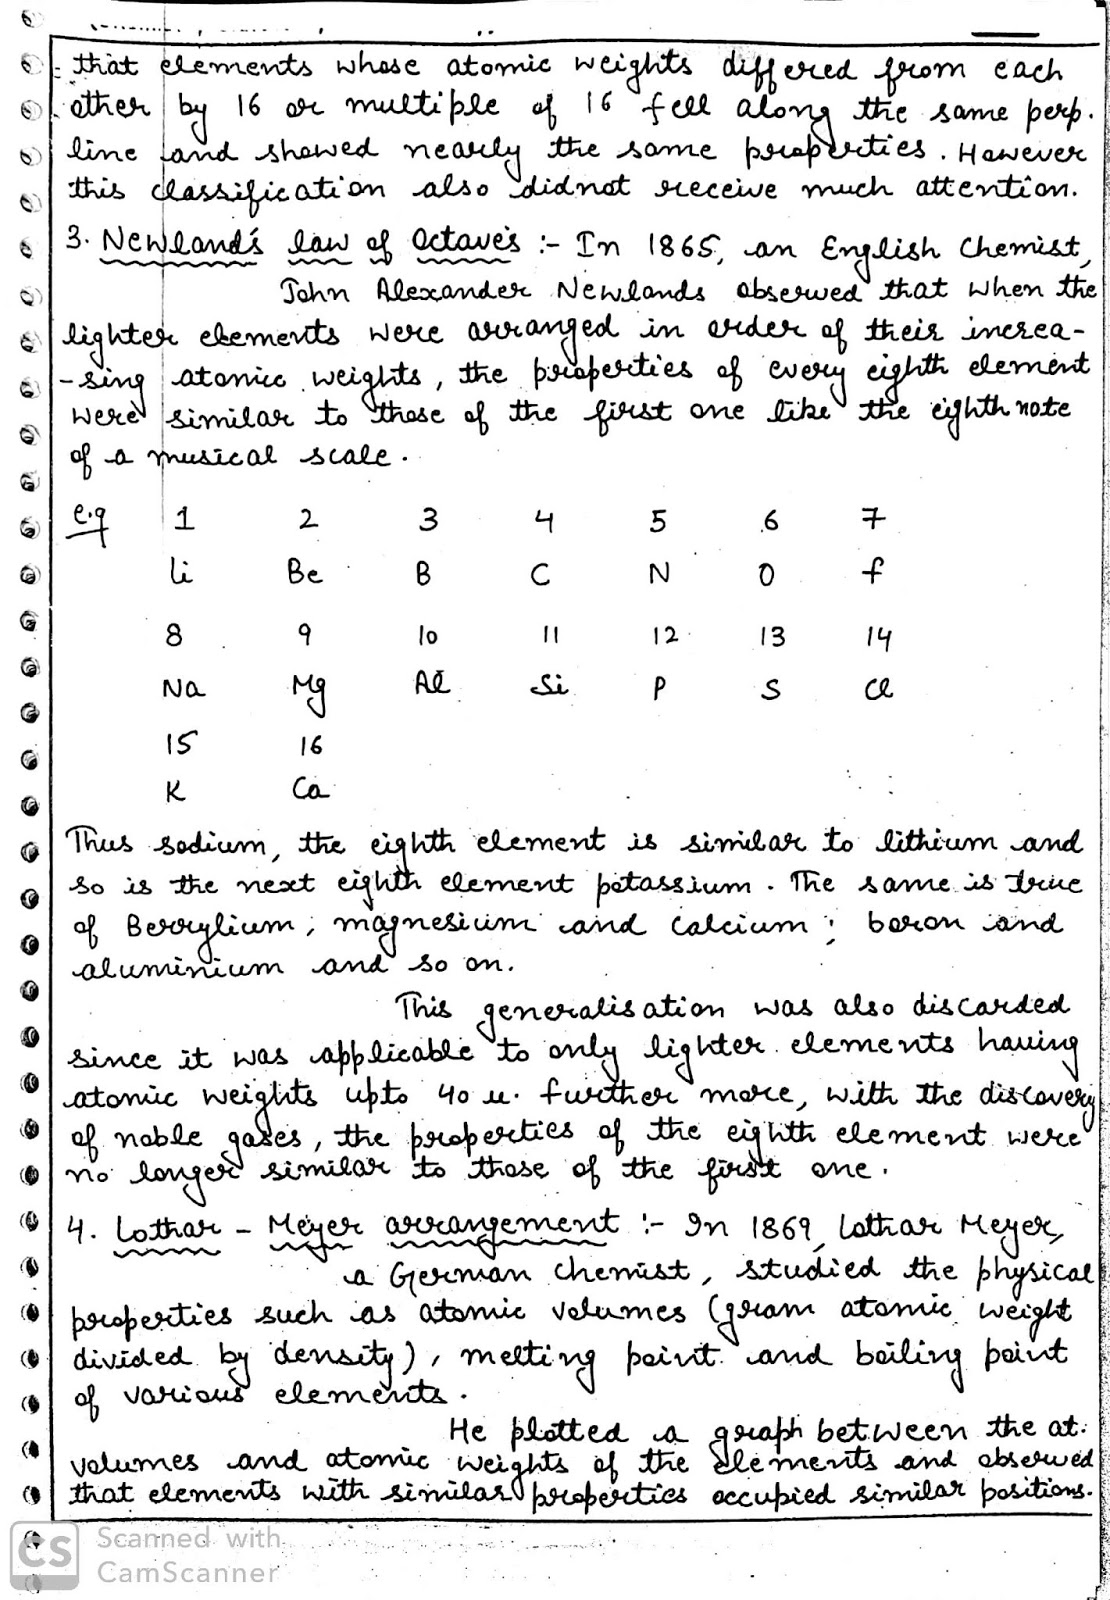 that elements whose atomic weights differed from each
other by 16 or multiple of 16 fell along the same perp.
line and showed nearly the same properties. However
this classification also didnot receive much attention.
3. Newland's law of Octaves :- In 1865, an English Chemist,
John Alexander Newlands observed that when the
lighter elements were arranged in order of their increa-
-sing atomic weights, the properties of every eighth element
were similar to those of the first one like the eighth note
of a musical scale.
e.g 1 2 3 4 5 6 7
Li Be B C N O f
8 9 10 11 12 13 14
Na Mg Al Si P S Cl
15 16
K Ca
Thus sodium, the eighth element is similar to lithium and
so is the next eighth element potassium. The same is true
of Berrylium, magnesium and Calcium; boron and
aluminium and so on.
This generalisation was also discarded
since it was applicable to only lighter elements having
atomic weights upto 40 u. further more, with the discovery
of noble gases, the properties of the eighth element were
no longer similar to those of the first one.
4. Lothar - Meyer arrangement :- In 1869, Lothar Meyer,
a German chemist, studied the physical
properties such as atomic volumes (gram atomic weight
divided by density), melting point and boiling point
of various elements.
He plotted a graph between the at.
volumes and atomic weights of the elements and observed
that elements with similar properties occupied similar positions.
CS Scanned with
CamScanner